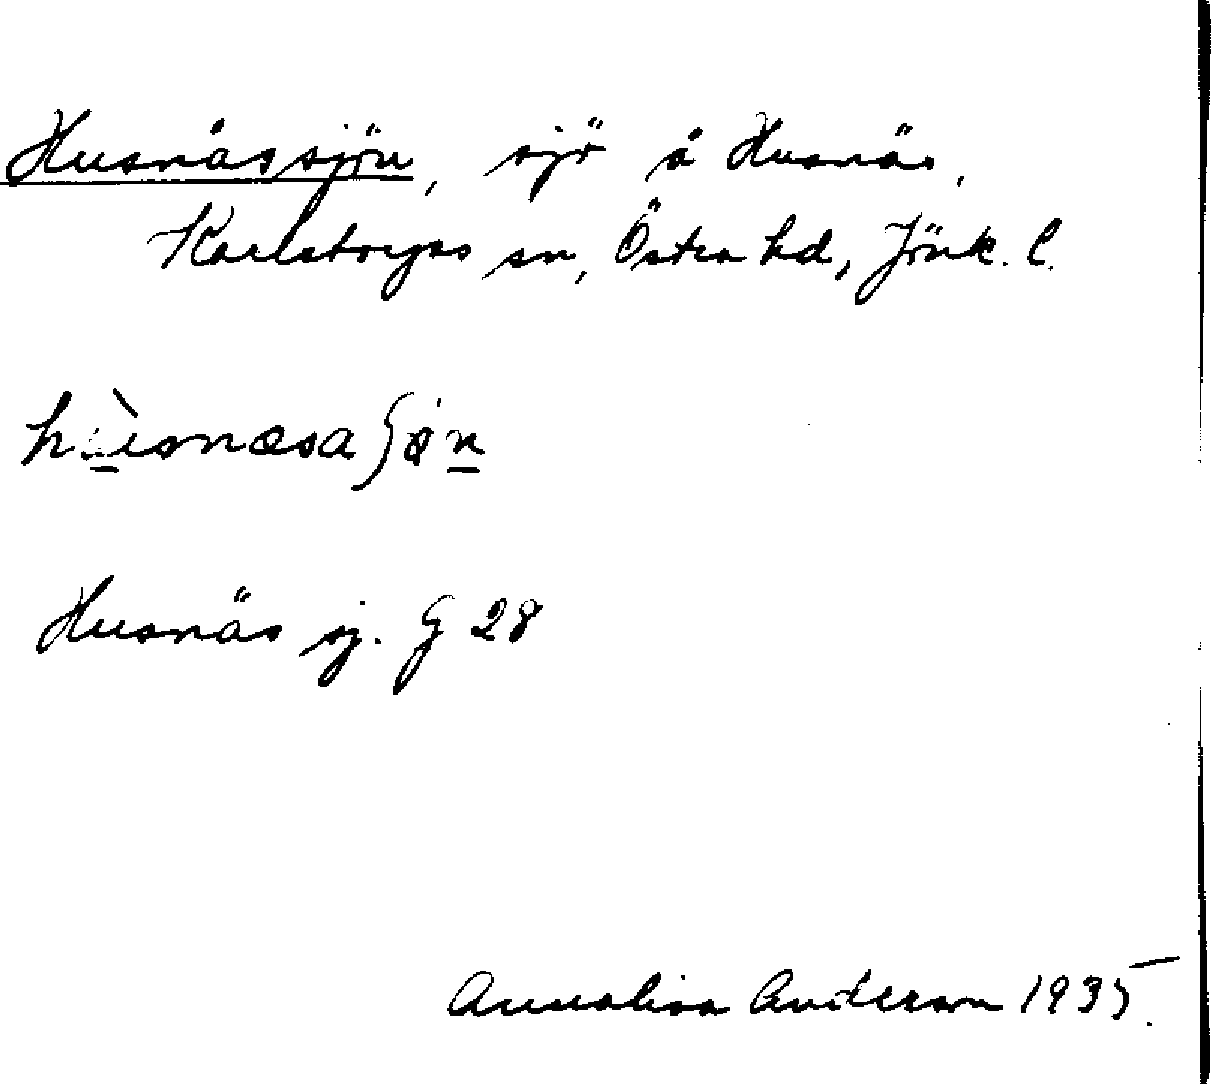 Husnässjön, sjö å Husnäs,
Karlstorps sn, Östra hd, Jönk. l.
hùsnæsaʃøn
Husnäs sj. G 28
Annalisa Anderson 1935.